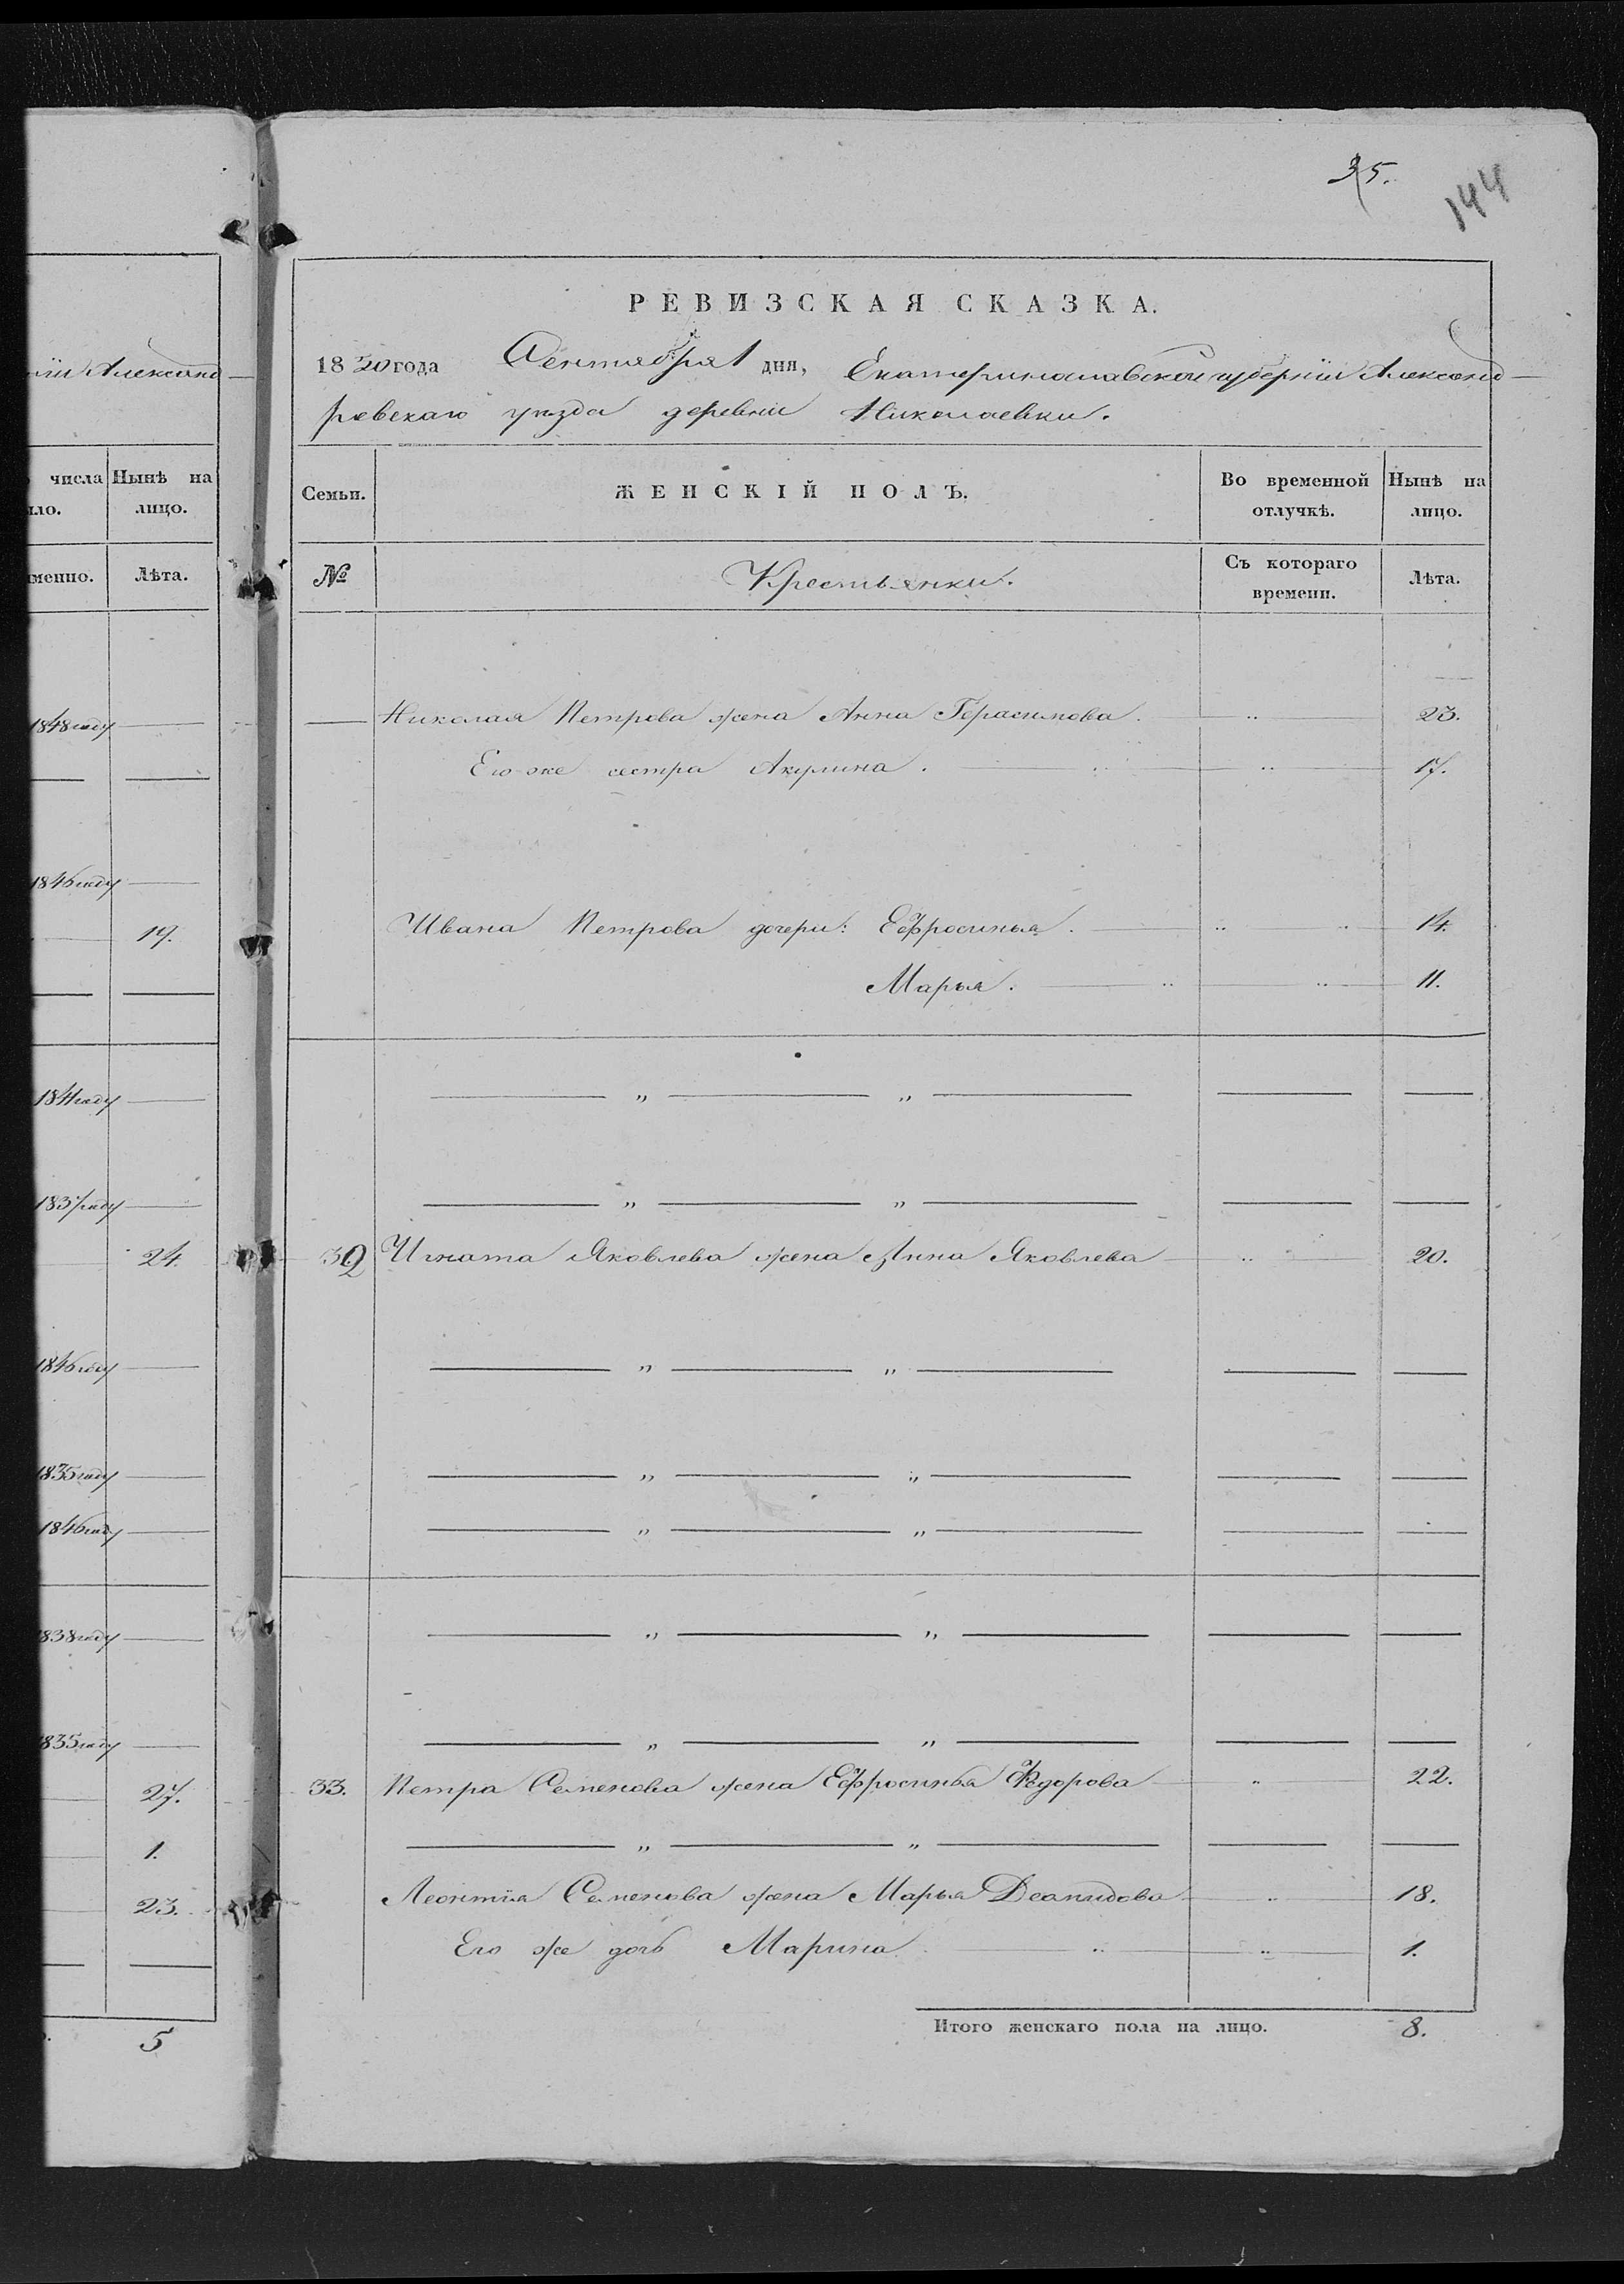 35.
144
РЕВИЗСКАЯ СКАЗКА.
1850 года Сентября 1 дня, Екатеринославской губерніи Александ-
ровскаго уѣзда деревни Николаевки.
Семьи.
ЖЕНСКІЙ ПОЛЪ.
Во временной отлучкѣ.
Нынѣ на лицо.
№
Крестьянки.
Съ котораго времени.
Лѣта.
Николая Петрова жена Анна Герасимова. 23.
Его же сестра Акулина. 17.
Ивана Петрова дочери: Ефросинья. 14.
Марья. 11.
32 Игната Яковлева жена Анна Яковлева 20.
33. Петра Семенова жена Ефросинья Федорова 22.
Леонтія Семенова жена Марья Деамидова 18.
Его же дочь Марина. 1.
Итого женскаго пола на лицо. 8.
іи Александ-
числа
ло.
Нынѣ на
лицо.
менно.
Лѣта.
1848 году
1846 году
19.
1841 году
1837 году
24.
1846 году
1835 году
1846 году
1838 году
1835 году
27.
1.
23.
5